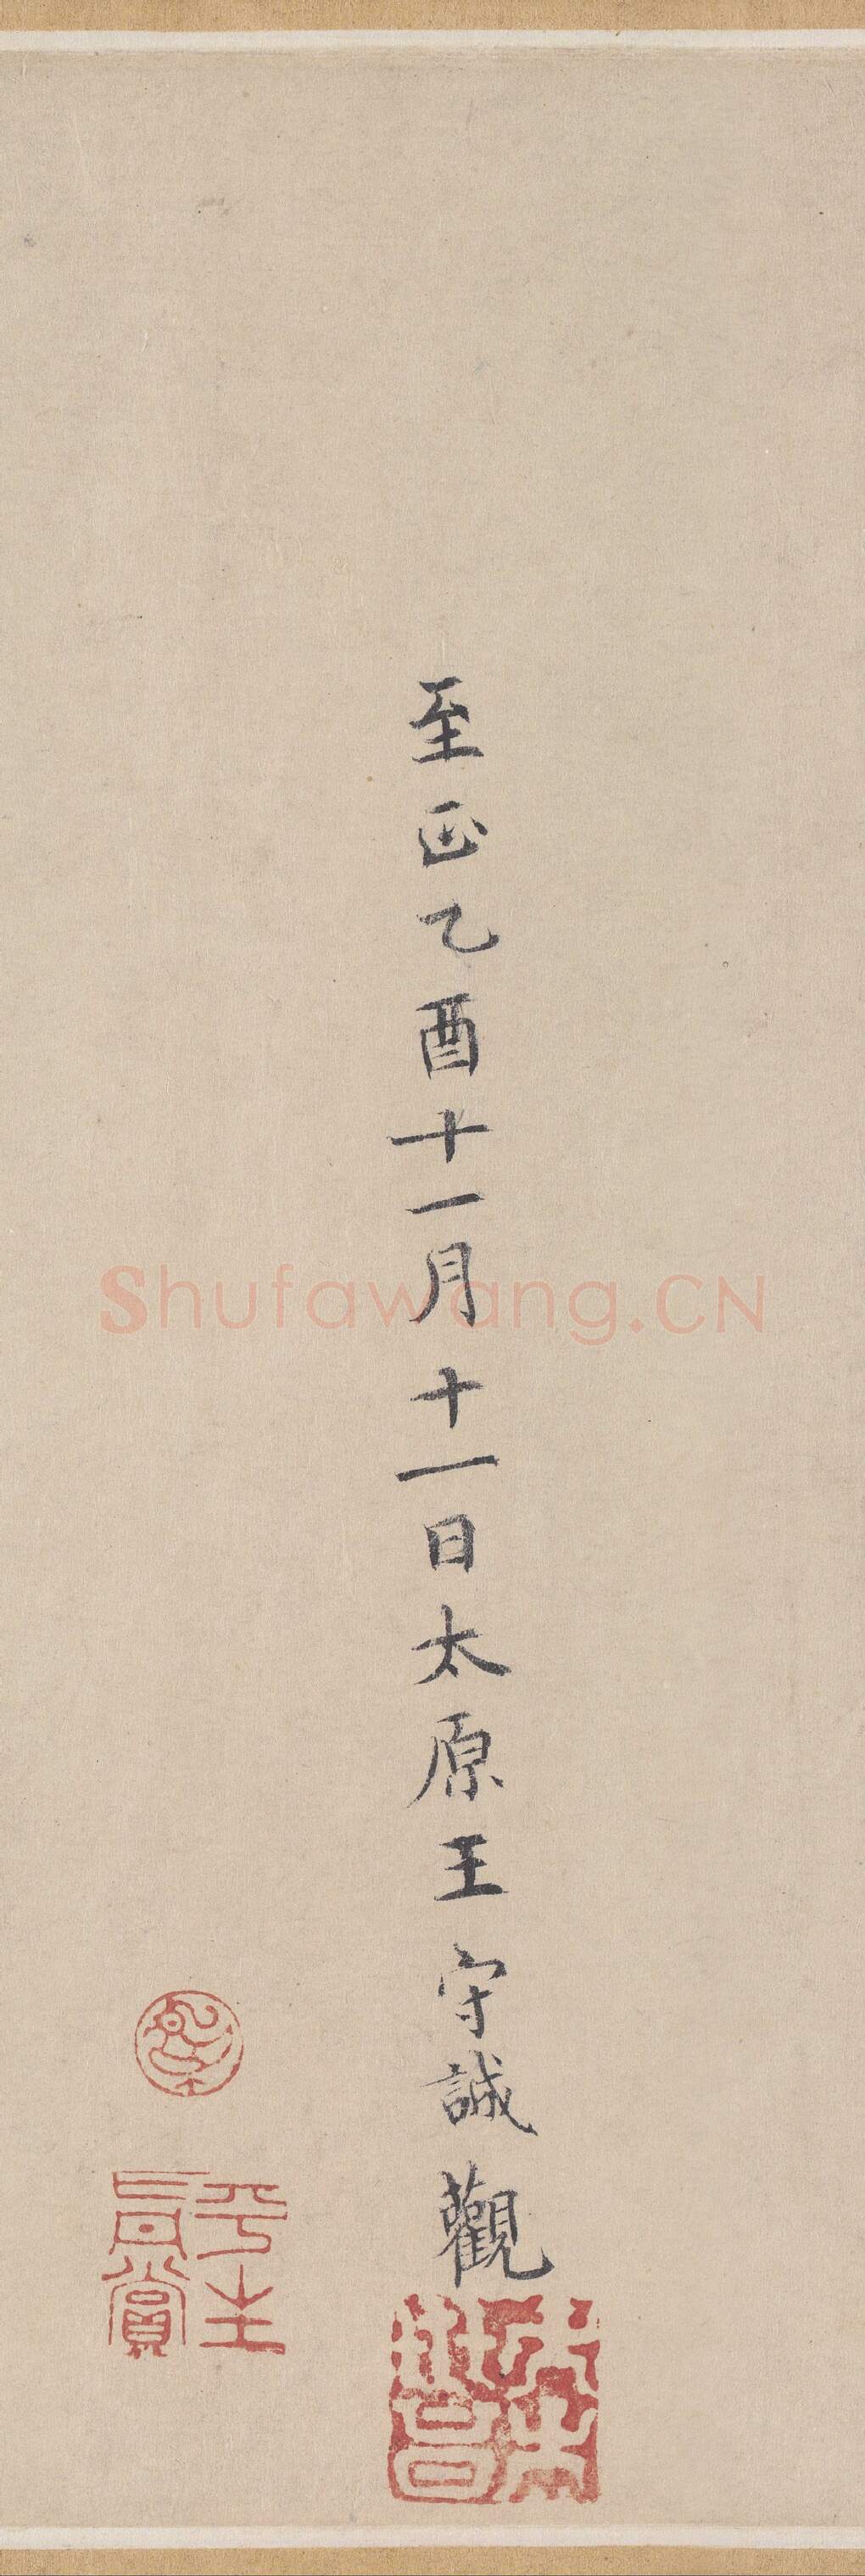 至正乙酉十一月十一日太原王守誠觀
平生真賞
Shufawang.CN